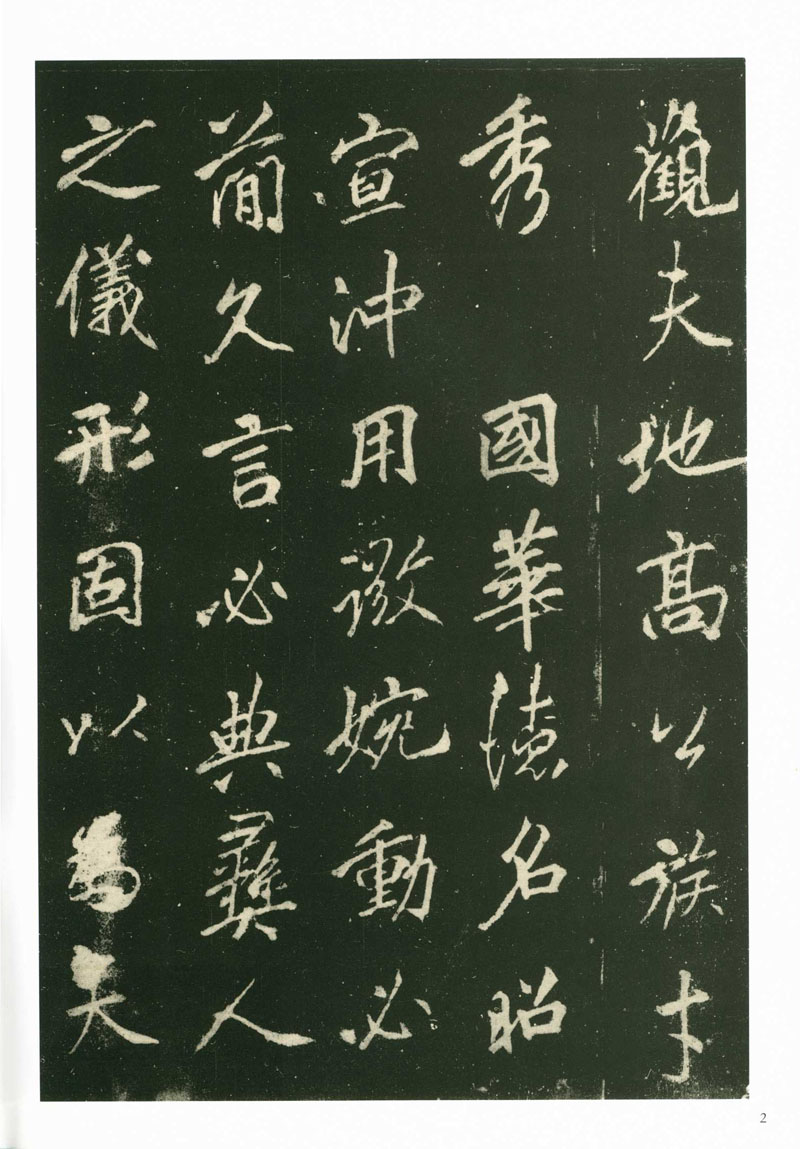 觀夫地高公族才
秀 國華德名昭
宣沖用微婉動必
簡久言必典彝人
之儀形固以為
2